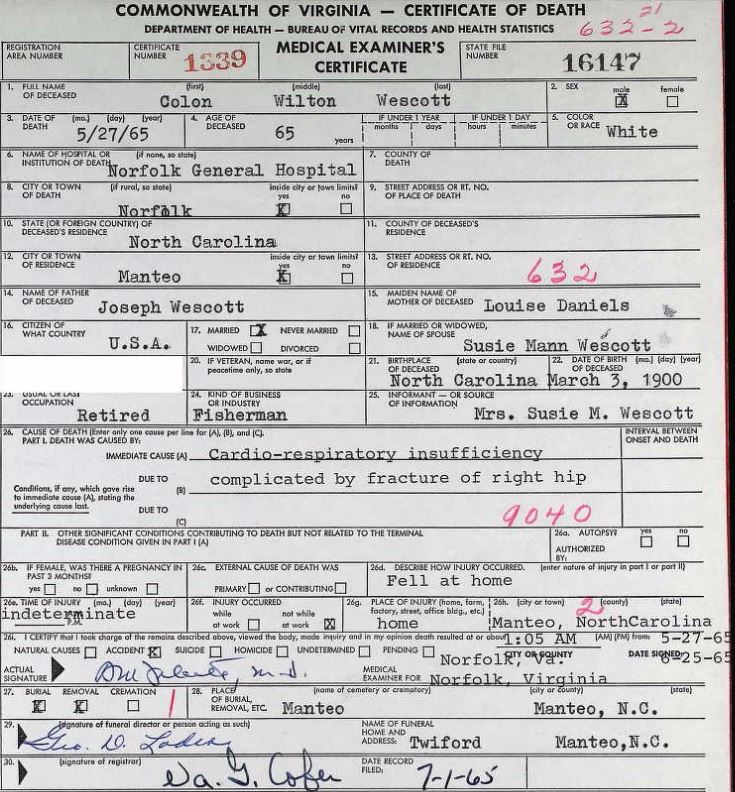 COMMONWEALTH OF VIRGINIA — CERTIFICATE OF DEATH
DEPARTMENT OF HEALTH — BUREAU OF VITAL RECORDS AND HEALTH STATISTICS 632-2 21
REGISTRATION AREA NUMBER CERTIFICATE NUMBER 1339 MEDICAL EXAMINER'S CERTIFICATE STATE FILE NUMBER 16147
1. FULL NAME OF DECEASED (first) (middle) (last) 2. SEX male female
Colon Wilton Wescott X
3. DATE OF DEATH (mo.) (day) (year) 4. AGE OF DECEASED IF UNDER 1 YEAR IF UNDER 1 DAY 5. COLOR OR RACE White
5/27/65 65 years months days hours minutes
6. NAME OF HOSPITAL OR INSTITUTION OF DEATH (if none, so state) 7. COUNTY OF DEATH
Norfolk General Hospital
8. CITY OR TOWN OF DEATH (if rural, so state) inside city or town limits? yes no 9. STREET ADDRESS OR RT. NO. OF PLACE OF DEATH
Norfolk X
10. STATE (OR FOREIGN COUNTRY) OF DECEASED'S RESIDENCE 11. COUNTY OF DECEASED'S RESIDENCE
North Carolina
12. CITY OR TOWN OF RESIDENCE inside city or town limits? yes no 13. STREET ADDRESS OR RT. NO. OF RESIDENCE 632
Manteo X
14. NAME OF FATHER OF DECEASED Joseph Wescott 15. MAIDEN NAME OF MOTHER OF DECEASED Louise Daniels
16. CITIZEN OF WHAT COUNTRY U.S.A. 17. MARRIED X NEVER MARRIED WIDOWED DIVORCED 18. IF MARRIED OR WIDOWED, NAME OF SPOUSE Susie Mann Wescott
20. IF VETERAN, name war, or if peacetime only, so state 21. BIRTHPLACE OF DECEASED (state or country) 22. DATE OF BIRTH OF DECEASED (mo.) (day) (year)
North Carolina March 3, 1900
23. USUAL OR LAST OCCUPATION 24. KIND OF BUSINESS OR INDUSTRY 25. INFORMANT — OR SOURCE OF INFORMATION
Retired Fisherman Mrs. Susie M. Wescott
26. CAUSE OF DEATH (Enter only one cause per line for (A), (B), and (C). INTERVAL BETWEEN ONSET AND DEATH
PART I. DEATH WAS CAUSED BY:
IMMEDIATE CAUSE (A) Cardio-respiratory insufficiency
DUE TO (B) complicated by fracture of right hip
Conditions, if any, which gave rise to immediate cause (A), stating the underlying cause last.
DUE TO (C) 9040
PART II. OTHER SIGNIFICANT CONDITIONS CONTRIBUTING TO DEATH BUT NOT RELATED TO THE TERMINAL DISEASE CONDITION GIVEN IN PART I (A) 26a. AUTOPSY? yes no AUTHORIZED BY:
26b. IF FEMALE, WAS THERE A PREGNANCY IN PAST 3 MONTHS? yes no unknown 26c. EXTERNAL CAUSE OF DEATH WAS PRIMARY or CONTRIBUTING 26d. DESCRIBE HOW INJURY OCCURRED. (enter nature of injury in part I or part II)
Fell at home
26e. TIME OF INJURY (mo.) (day) (year) 26f. INJURY OCCURRED while at work not while at work X 26g. PLACE OF INJURY (home, farm, factory, street, office bldg., etc.) 26h. (city or town) (county) (state) 2
indeterminate P.M. home Manteo, NorthCarolina
26i. I CERTIFY that I took charge of the remains described above, viewed the body, made inquiry and in my opinion death resulted at or about 1:05 AM (AM) (PM) from: 5-27-65
NATURAL CAUSES ACCIDENT X SUICIDE HOMICIDE UNDETERMINED PENDING Norfolk, Va. CITY OR COUNTY DATE SIGNED: 6-25-65
ACTUAL SIGNATURE M.D. MEDICAL EXAMINER FOR Norfolk, Virginia
27. BURIAL REMOVAL CREMATION 28. PLACE OF BURIAL, REMOVAL, ETC. (name of cemetery or crematory) (city or county) (state)
X X Manteo Manteo, N.C.
29. (signature of funeral director or person acting as such) NAME OF FUNERAL HOME AND ADDRESS: Twiford Manteo,N.C.
Geo. D.
30. (signature of registrar) DATE RECORD FILED: 7-1-65